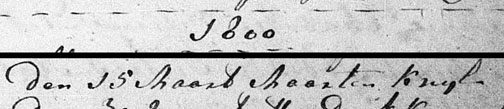 1800
Den 15 Maart Maarten Kruyt